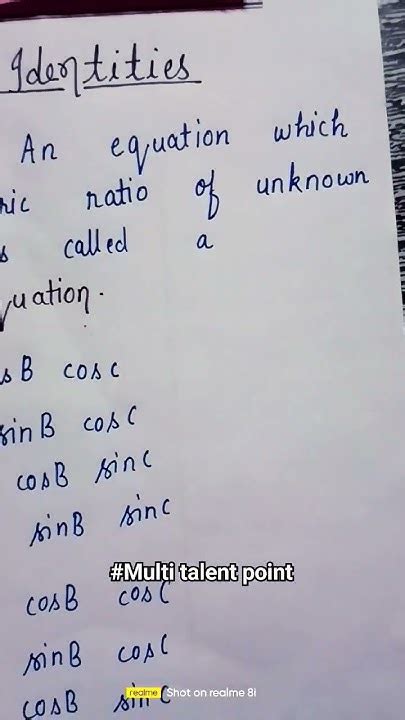 Identities
An equation which
ric ratio of unknown
s called a
quation.
sB cosC
sinB cosC
cosB sinC
sinB sinC
#Multi talent point
cosB cosC
sinB cosC
cosB sinC
realme Shot on realme 8i